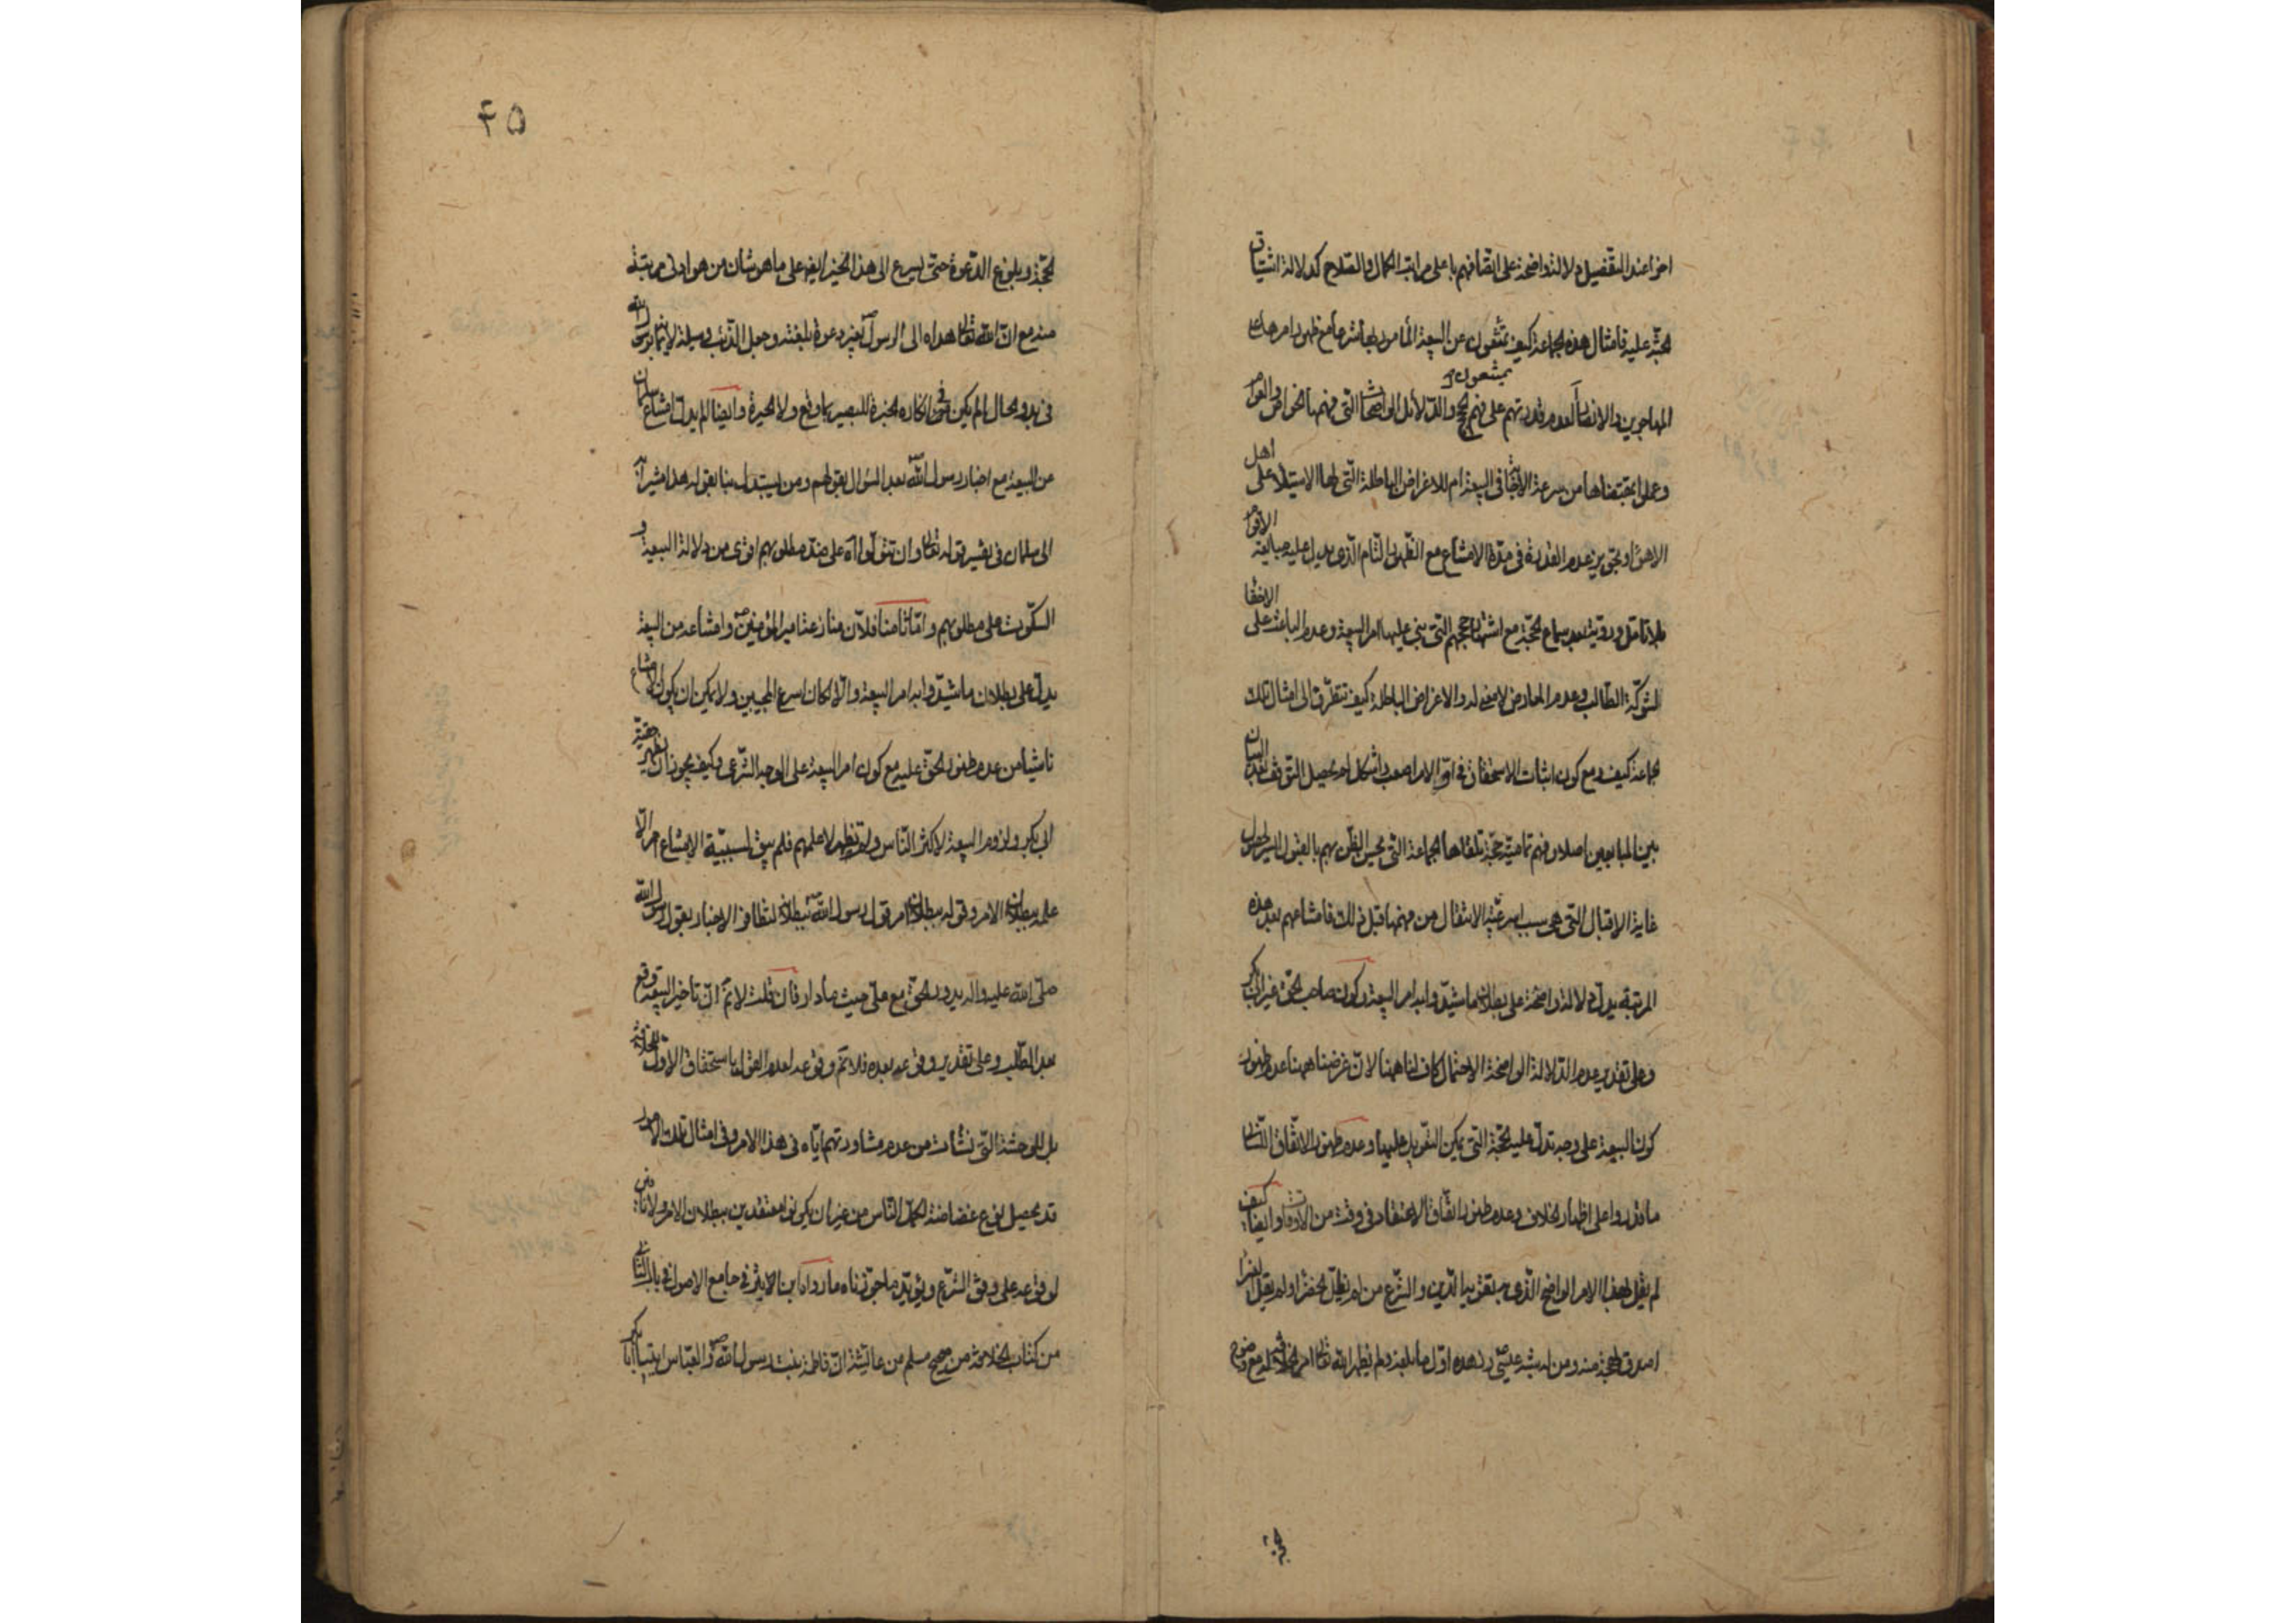 اخر عند التفضيل دلالة واضحة على اتصافهم باعلى مراتب الكمال والصلاح كدلالة اشتياق
الجنة عليه فامثال هذه الجماعة كيف يمتنعون عن البيعة المأمور بها شرعا مع ظهور امرها على
يمتنعون
المهاجرين والانصار لعدم قدرتهم على فهم الحجج والدلائل الواضحات التي فهمها الخواص والعوام
وعملوا بمقتضاها من سرعة الاتفاق في البيعة ام للاغراض الباطلة التي لها الاستيلاء على اهل
الاهواء وتجويز عدم القدرة في مدة الامتناع مع الظهور التام الذي يدل عليه مبايعة الاقوام
بلا تامل وروية بعد سماع الحجة مع اشتهار حججهم التي بني عليها امر البيعة وعدم الباعث على الاخفاء
لشوكة الطالب وعدم المعارض لا معنى له والاغراض الباطلة كيف تتطرق الى امثال تلك
الجماعة كيف ومع كون اثبات الاستحقاق في اول الامر اصعب واشكل لم يحصل التوقف
بين المبايعين اصلا وفهم تمامية حجة تلقاها الجماعة التي يحسن الظن بهم بالقبول اسير لحصول
غاية الاقبال التي هي سبب لسرعة الانتقال من فهمها قبل ذلك فامتناعهم بعد هذه
المرتبة يدل دلالة واضحة على بطلان ما شيدوا به امر البيعة وكون صاحب الحق غير ابي بكر
وعلى تقدير عدم الدلالة الواضحة الاحتمال كاف لنا ههنا لان غرضنا ههنا عدم ظهور
كون البيعة على وجه تدل عليه الحجة التي يمكن التعويل عليها وعدم ظهور الاتفاق الذي
ما قدروا على اظهار الخلاف وعدم ظهور اتفاق الاعتقاد في وقت من الاوقات وايضا كيف
لم يقل بهذا الامر الواضح الذي يتعلق بالدين والشرع من لم تظل الخضراء ولم تقل الغبراء
اصدق لهجة منه ومن له شبه عيسى في زهده اول ما بلغه ولم يظهر الله تعالى امر الخلافة له مع وضوح
۴۵
الحجة وبلوغ الدعوة حتى يسرع الى هذا الخير ايضا على ما هو شان من هو ادنى مرتبة
منه مع ان الله تعالى هداه الى الرسول بغير دعوة بلغته وجعل الذئب وسيلة لايمانه برسول الله
في بدو الحال لم يكن في انكاره الحيرة للبصير بما وقع ولا الحيرة وايضا لم يدل امتناع سلمان
من البيعة مع اخبار رسول الله بعد السؤال بقولهم ومن يستبدل بنا بقوله هذا مشيرا
الى سلمان في تفسير قوله تعالى وان تتولوا اه على ضد مطلوبهم اقوى من دلالة البيعة و
السكوت على مطلوبهم واما ثامنا فلان منازعة امير المؤمنين وامتناعه من البيعة
يدل على بطلان ما شيدوا به امر البيعة والا لكان اسرع المجيبين ولا يمكن ان يكون الامتناع
ناشيا من عدم ظهور الحق عليه مع كون امر البيعة على الوجه الشرعي وكيف يجوز ان يظهر حقية
ابي بكر ولزوم البيعة لاكثر الناس ولم تظهر لاعلمهم فلم يبق لسببية الامتناع امر الا
علمه ببطلان الامر وقوله ببطلان امر قول رسول الله ببطلانه لتظافر الاخبار بقول رسول الله
صلى الله عليه واله يدور الحق مع علي حيث ما دار فان قلت لا نم ان تاخير البيعة وقع
بعد الطلب وعلى تقدير وقوعه بعده فلا نم وقوعه لعدم القول باستحقاق الاول للخلافة
بل للوحشة التي نشأت من عدم مشاورتهم اياه في هذا الامر وفي امثال تلك الامور
قد يحصل نوع غضاضة لكمل الناس من غير ان يكونوا معتقدين ببطلان الامر ولا
لوقوعه على وفق الشرع ويؤيد ما جوزناه ما رواه ابن الاثير في جامع الاصول في الباب الثاني
من كتاب الخلافة من صحيح مسلم من عائشة ان فاطمة بنت رسول الله والعباس اتيا ابا بكر